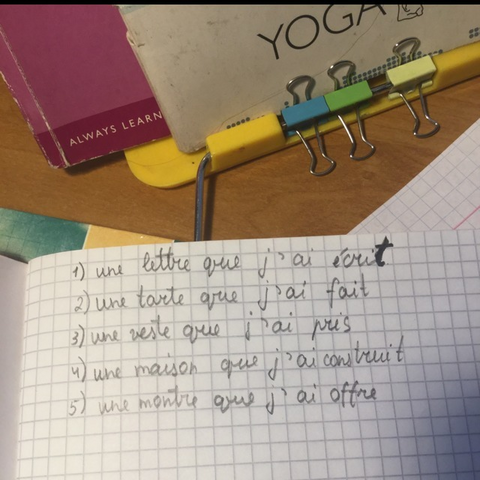 YOGA
ALWAYS LEARN
1) une lettre que j'ai écrit
2) une tarte que j'ai fait
3) une veste que j'ai pris
4) une maison que j'ai construit
5) une montre que j'ai offre